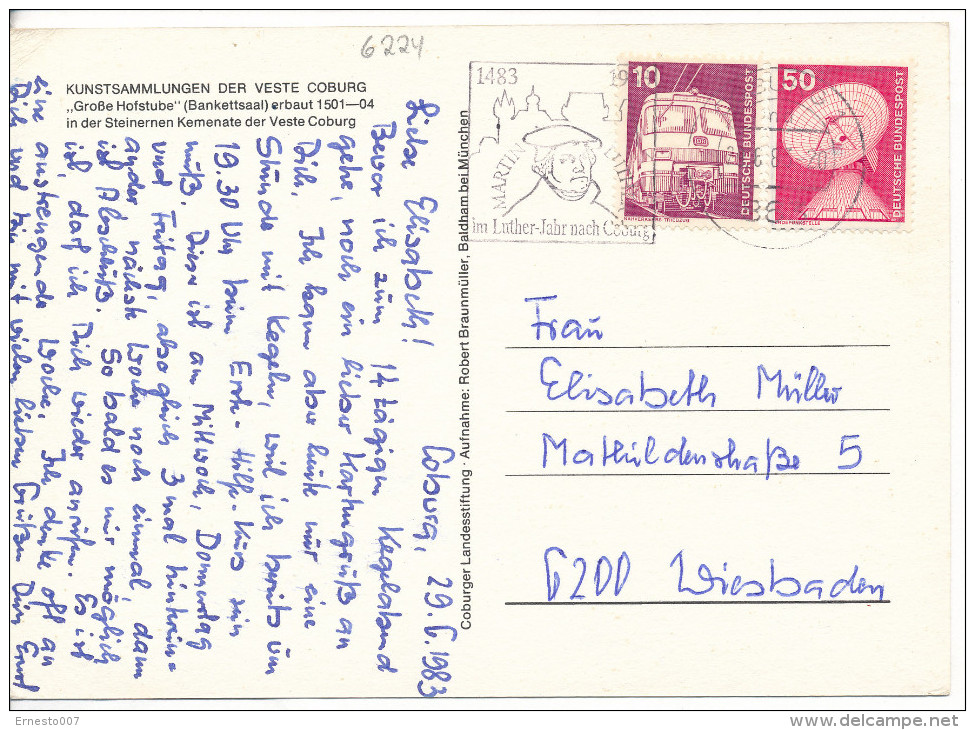 6224
KUNSTSAMMLUNGEN DER VESTE COBURG
„Große Hofstube" (Bankettsaal) erbaut 1501—04
in der Steinernen Kemenate der Veste Coburg
Coburg, 29.6.1983
Liebe Elisabeth!
Bevor ich zum 14 tägigen Kegelabend
gehe, noch ein lieber Kartengruß an
Dich. Ich kann aber heute nur eine
Stunde mit Kegeln, weil ich bereits um
19.30 Uhr beim Erste-Hilfe-Kurs sein
muß. Dieser ist am Mittwoch, Donnerstag
und Freitag, also gleich 3 mal hinterein=
ander nächste Woche noch einmal, dann
ist Abschluß. So bald es mir möglich
ist, darf ich Dich wieder anrufen. Es ist
eine anstrengende Woche. Ich denke oft an
Dich und bin mit vielen lieben Grüßen Dein Ernst
Coburger Landesstiftung · Aufnahme: Robert Braunmüller, Baldham bei München
1483
MARTIN LUTHER
im Luther-Jahr nach Coburg
10
DEUTSCHE BUNDESPOST
NAHVERKEHRS-TRIEBZUG
50
DEUTSCHE BUNDESPOST
ERDFUNKSTELLE
Frau
Elisabeth Müller
Mathildenstraße 5
6200 Wiesbaden
Ernesto007
delcampe.net